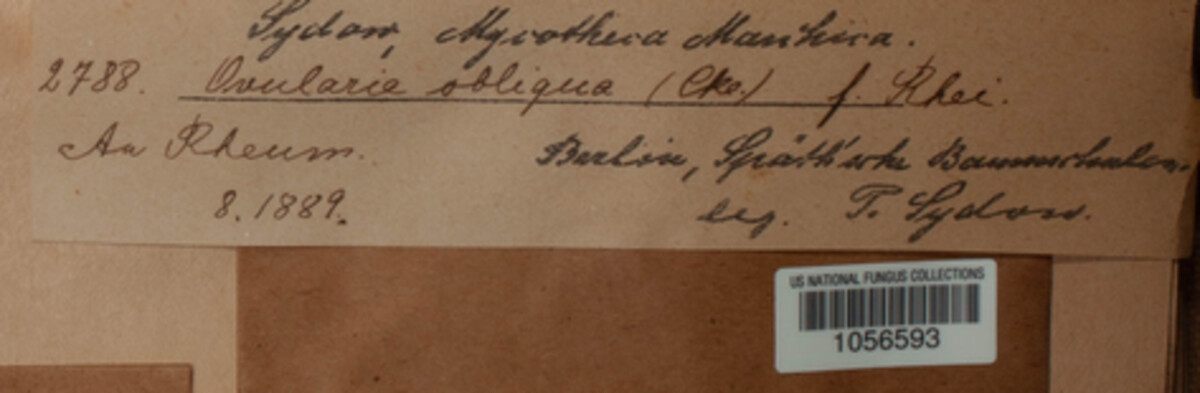 Sydow, Mycotheca Marchica.
2788. Ovularia obliqua (Cke.) f. Rhei.
An Rheum.
Berlin, Späth'sche Baumschulen.
8.1889.
leg. P. Sydow.
US NATIONAL FUNGUS COLLECTIONS
1056593